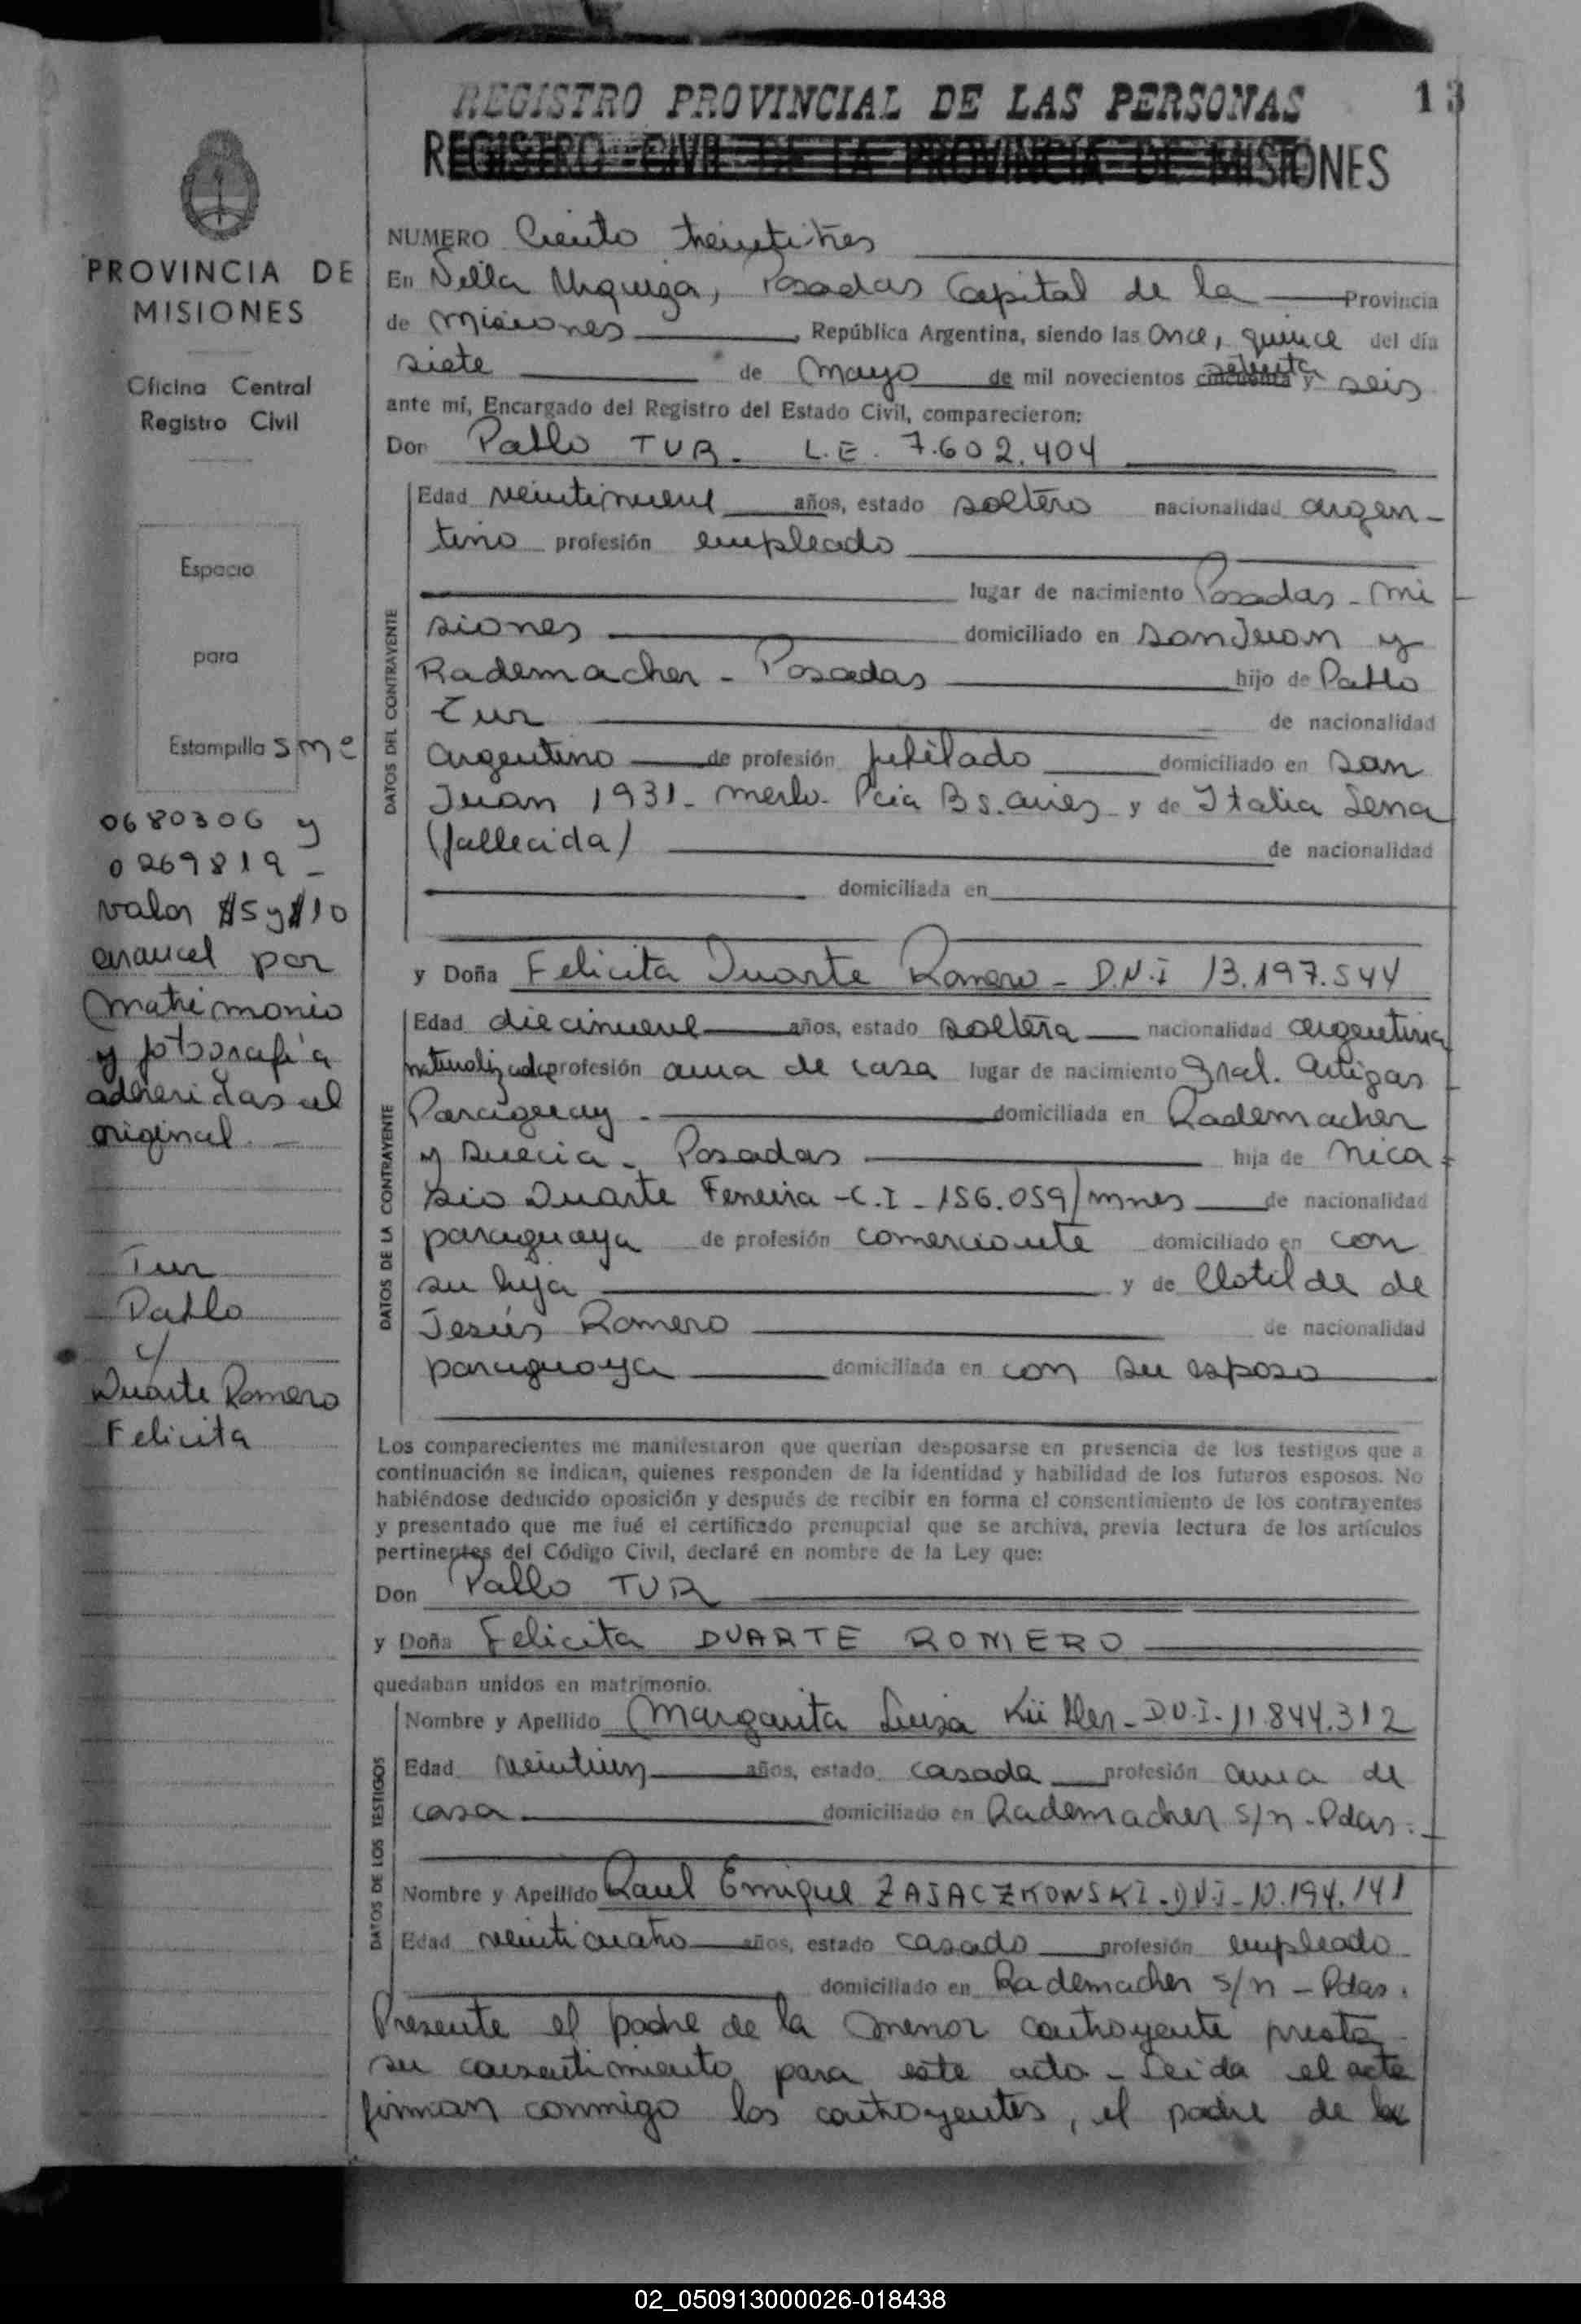 REGISTRO PROVINCIAL DE LAS PERSONAS 13
REGISTRO CIVIL DE LA PROVINCIA DE MISIONES
PROVINCIA DE
MISIONES
Oficina Central
Registro Civil
Espacio
para
Estampilla S m e
0680306 y
0269819 -
valor $5 y $10
arancel por
matrimonio
y fotografía
adheridas al
original. -
Tur
Pablo
c/
Duarte Romero
Felicita
NUMERO Ciento treintitres
En Villa Urquiza, Posadas Capital de la Provincia
de Misiones, República Argentina, siendo las Once, quince del día
siete de Mayo de mil novecientos cincuenta setenta y seis
ante mí, Encargado del Registro del Estado Civil, comparecieron:
Don Pablo TUR. L.E. 7.602.404
DATOS DEL CONTRAYENTE
Edad veintinueve años, estado soltero nacionalidad argen-
tino profesión empleado
lugar de nacimiento Posadas - Mi
siones domiciliado en San Juan y
Rademacher - Posadas hijo de Pablo
Tur de nacionalidad
argentino de profesión jubilado domiciliado en San
Juan 1931 - Merlo - Pcia Bs. aires y de Italia Sena
(fallecida) de nacionalidad
domiciliada en
y Doña Felicita Duarte Romero - D.N.I 13.197.544
DATOS DE LA CONTRAYENTE
Edad diecinueve años, estado soltera nacionalidad argentina
naturalizada profesión ama de casa lugar de nacimiento Gral. Artigas
Paraguay - domiciliada en Rademacher
y Suecia - Posadas hija de Nica-
sio Duarte Ferreira - C.I - 156.059/mnes de nacionalidad
paraguaya de profesión comerciante domiciliado en con
su hija y de Clotilde de
Jesús Romero de nacionalidad
paraguaya domiciliada en con su esposo
Los comparecientes me manifestaron que querían desposarse en presencia de los testigos que a
continuación se indican, quienes responden de la identidad y habilidad de los futuros esposos. No
habiéndose deducido oposición y después de recibir en forma el consentimiento de los contrayentes
y presentado que me fué el certificado prenupcial que se archiva, previa lectura de los artículos
pertinentes del Código Civil, declaré en nombre de la Ley que:
Don Pablo TUR
y Doña Felicita DUARTE ROMERO
quedaban unidos en matrimonio.
DATOS DE LOS TESTIGOS
Nombre y Apellido Margarita Luisa - D.N.I - 11.844.312
Edad veintiun años, estado casada profesión ama de
casa domiciliado en Rademacher s/n - Pdas.
Nombre y Apellido Raul Enrique ZAJACZKOWSKI - D.N.I - 10.194.141
Edad veinticuatro años, estado casado profesión empleado
domiciliado en Rademacher s/n - Pdas.
Presente el padre de la menor contrayente presta
su consentimiento para este acto - Leida el acta
firman conmigo los contrayentes, el padre de la
02_050913000026-018438